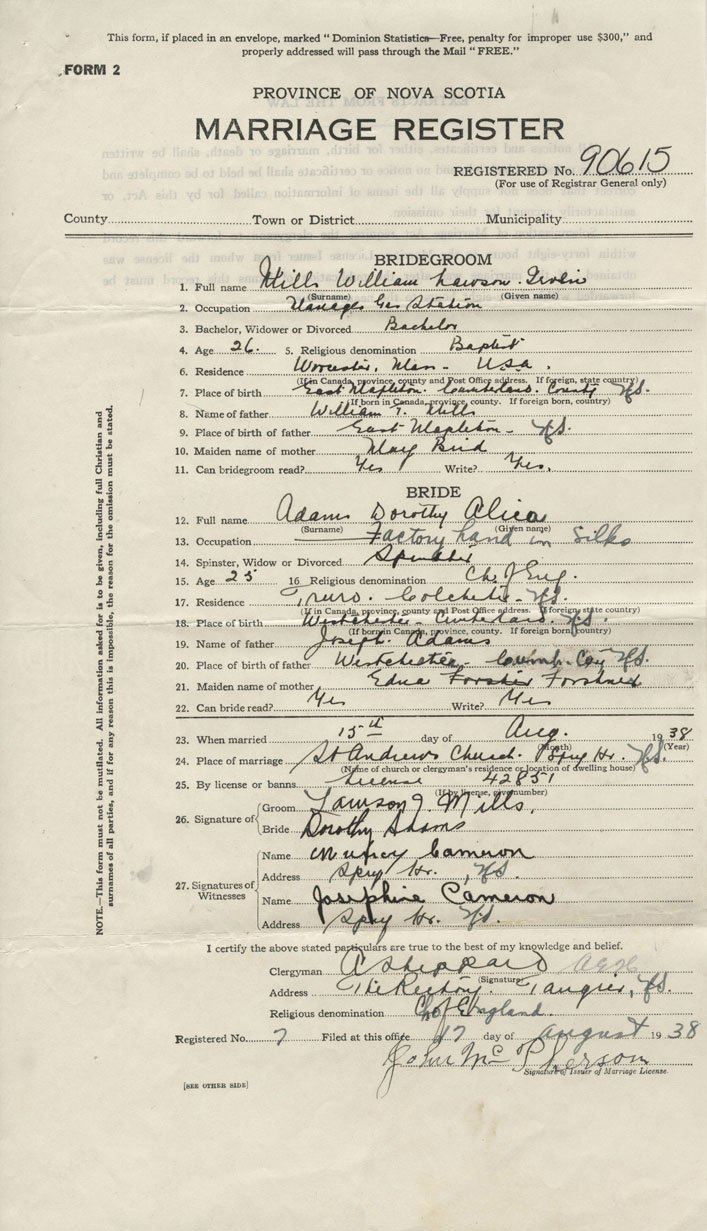 This form, if placed in an envelope, marked "Dominion Statistics—Free, penalty for improper use $300," and
properly addressed will pass through the Mail "FREE."
FORM 2
PROVINCE OF NOVA SCOTIA
MARRIAGE REGISTER
REGISTERED No. 90615
(For use of Registrar General only)
County Town or District Municipality
BRIDEGROOM
1. Full name Mills William Lawson
(Surname) (Given name)
2. Occupation Manages Gas Station
3. Bachelor, Widower or Divorced Bachelor
4. Age 26. 5. Religious denomination Baptist
6. Residence Worcester, Mass - USA.
(If in Canada, province, county and Post Office address. If foreign, state country)
7. Place of birth East Mapleton. Cumberland. County NS.
(If born in Canada, province, county. If foreign born, country)
8. Name of father William T. Mills
9. Place of birth of father East Mapleton - NS.
10. Maiden name of mother May
11. Can bridegroom read? Yes Write? Yes.
BRIDE
12. Full name Adams Dorothy Alice
(Surname) (Given name)
13. Occupation Factory hand in Silks
14. Spinster, Widow or Divorced Spinster
15. Age 25 16 Religious denomination Ch of Eng.
17. Residence Truro. Colchester - NS.
(If in Canada, province, county and Post Office address. If foreign, state country)
18. Place of birth Westchester - Cumberland. NS.
(If born in Canada, province, county. If foreign born, country)
19. Name of father Joseph. Adams
20. Place of birth of father Westchester - Cumb. Coy NS.
21. Maiden name of mother Edna Forshner
22. Can bride read? Yes Write? Yes
23. When married 15th day of Aug. 1938
(Month) (Year)
24. Place of marriage St Andrews Church. Spry Hr. NS.
(Name of church or clergyman's residence or location of dwelling house)
25. By license or banns License 42851
(If by license, give number)
26. Signature of Groom Lawson J. Mills,
Bride Dorothy Adams
27. Signatures of Witnesses
Name Cameron
Address Spry Hr., NS.
Name Josephine Cameron
Address Spry Hr. NS.
I certify the above stated particulars are true to the best of my knowledge and belief.
Clergyman A Sheppard
(Signature)
Address The Rectory. Tangier, NS.
Religious denomination Ch of England.
Registered No. 7 Filed at this office 17 day of August 1938
John McPherson
Signature of Issuer of Marriage License.
[SEE OTHER SIDE]
NOTE.—This form must not be mutilated. All information asked for is to be given, including full Christian and
surnames of all parties, and if for any reason this is impossible, the reason for the omission must be stated.